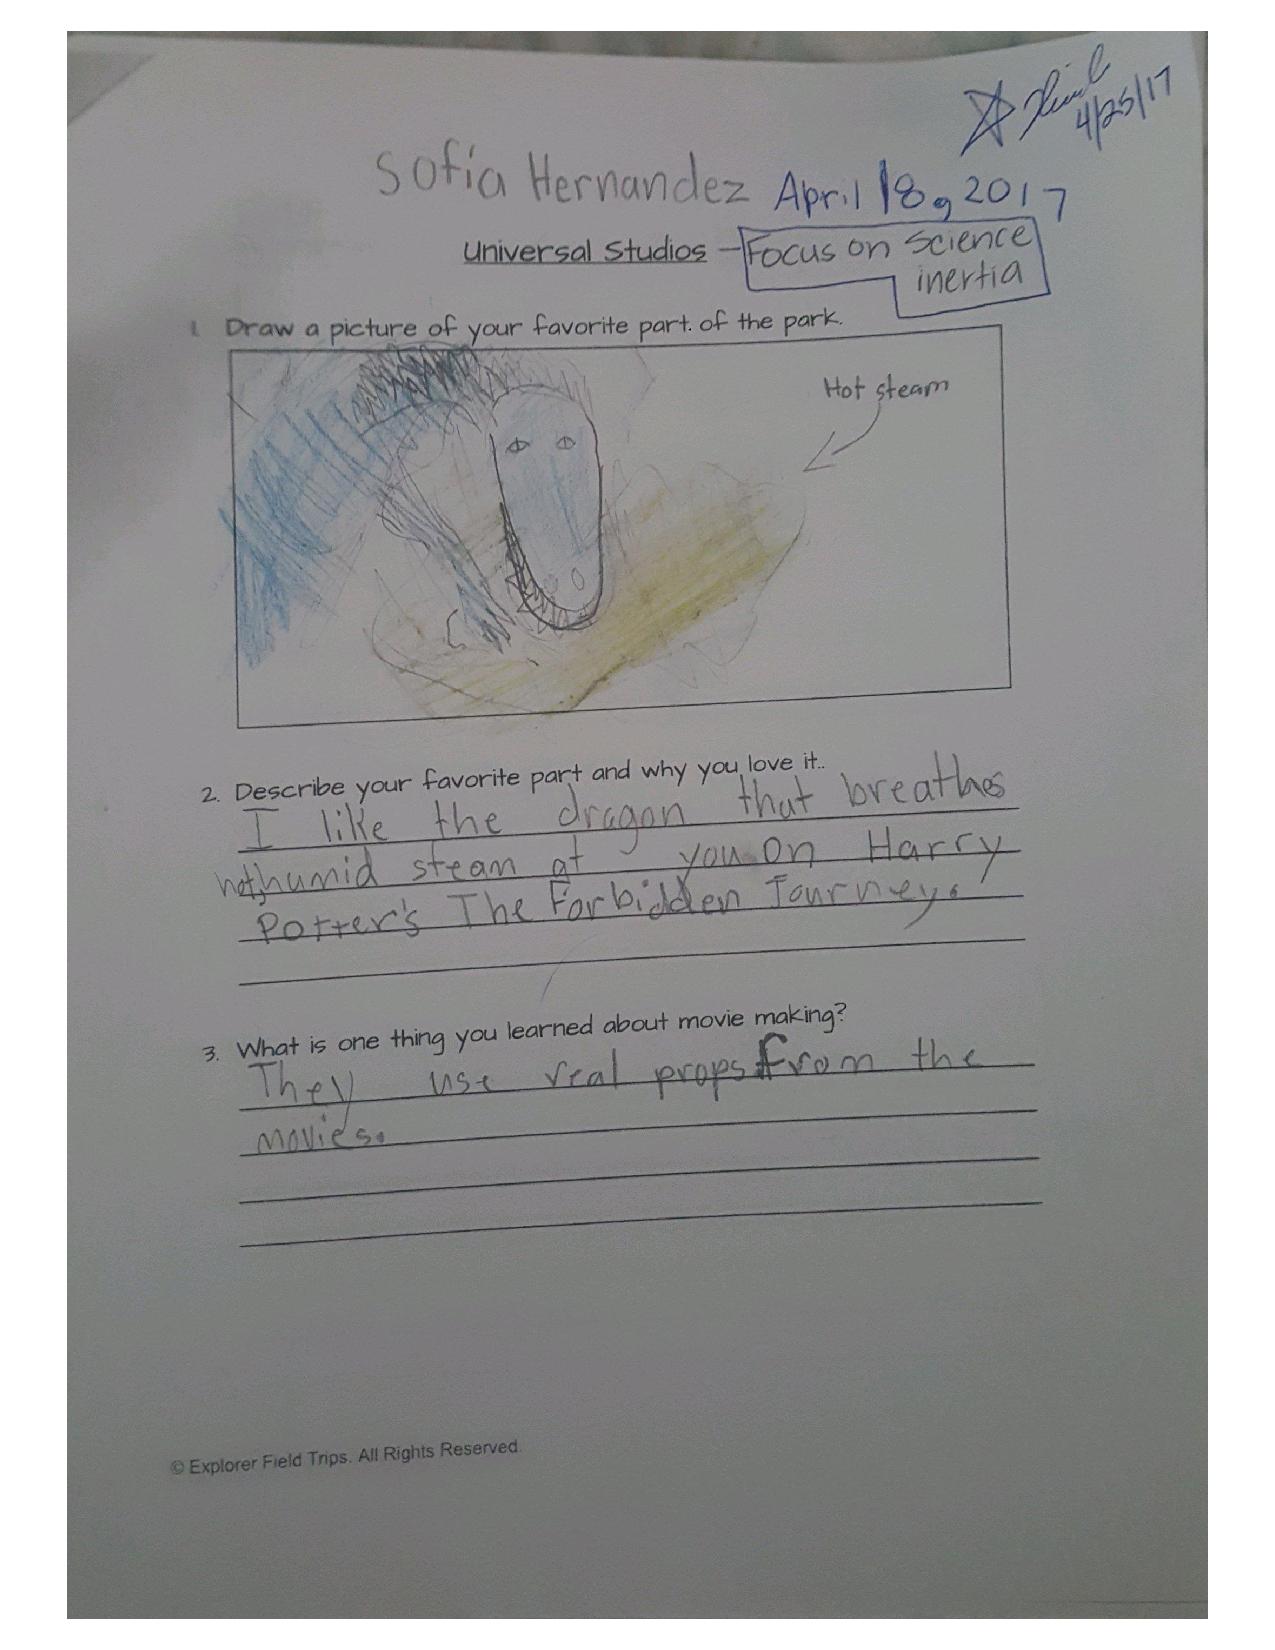 4/25/17
Sofía Hernandez April 18, 2017
Universal Studios - Focus on Science
inertia
1. Draw a picture of your favorite part. of the park.
Hot steam
2. Describe your favorite part and why you love it..
I like the dragon that breathes
hot, humid steam at you on Harry
Potter's The Forbidden Journey.
3. What is one thing you learned about movie making?
They use real props from the
movies.
© Explorer Field Trips. All Rights Reserved.